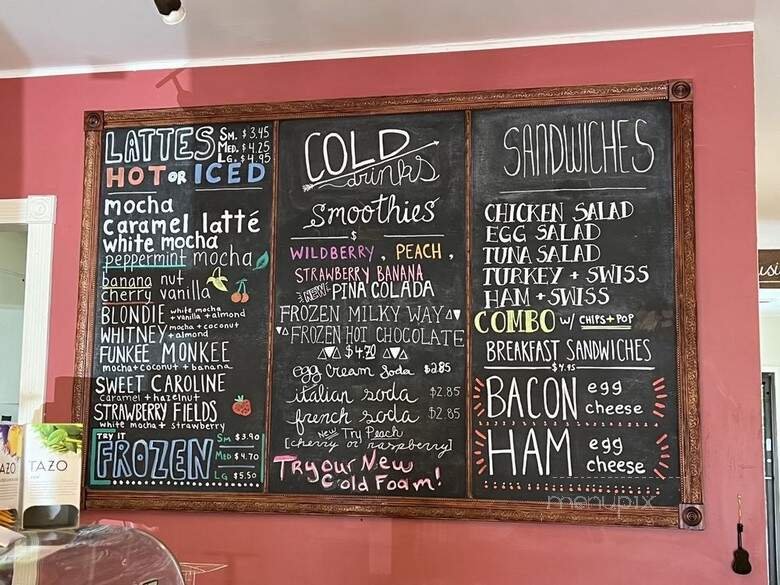 LATTES
SM. $3.45
MED. $4.25
LG. $4.95
HOT OR ICED
mocha
caramel latté
white mocha
peppermint mocha
banana nut
cherry vanilla
BLONDIE white mocha + vanilla + almond
WHITNEY mocha + coconut + almond
FUNKEE MONKEE
mocha + coconut + banana
SWEET CAROLINE
caramel + hazelnut
STRAWBERRY FIELDS
white mocha + strawberry
TRY IT
FROZEN
SM $3.90
MED $4.70
LG $5.50
COLD
drinks
smoothies
$
WILDBERRY, PEACH,
STRAWBERRY BANANA
NEW PINA COLADA
FROZEN MILKY WAY
FROZEN HOT CHOCOLATE
$4.70
egg cream soda $2.85
italian soda $2.85
french soda $2.85
NEW Try Peach
[cherry or raspberry]
Try our New
Cold Foam!
SANDWICHES
CHICKEN SALAD
EGG SALAD
TUNA SALAD
TURKEY + SWISS
HAM + SWISS
COMBO W/ CHIPS + POP
BREAKFAST SANDWICHES
$4.95
BACON egg
cheese
HAM egg
cheese
menupix
AZO
TAZO